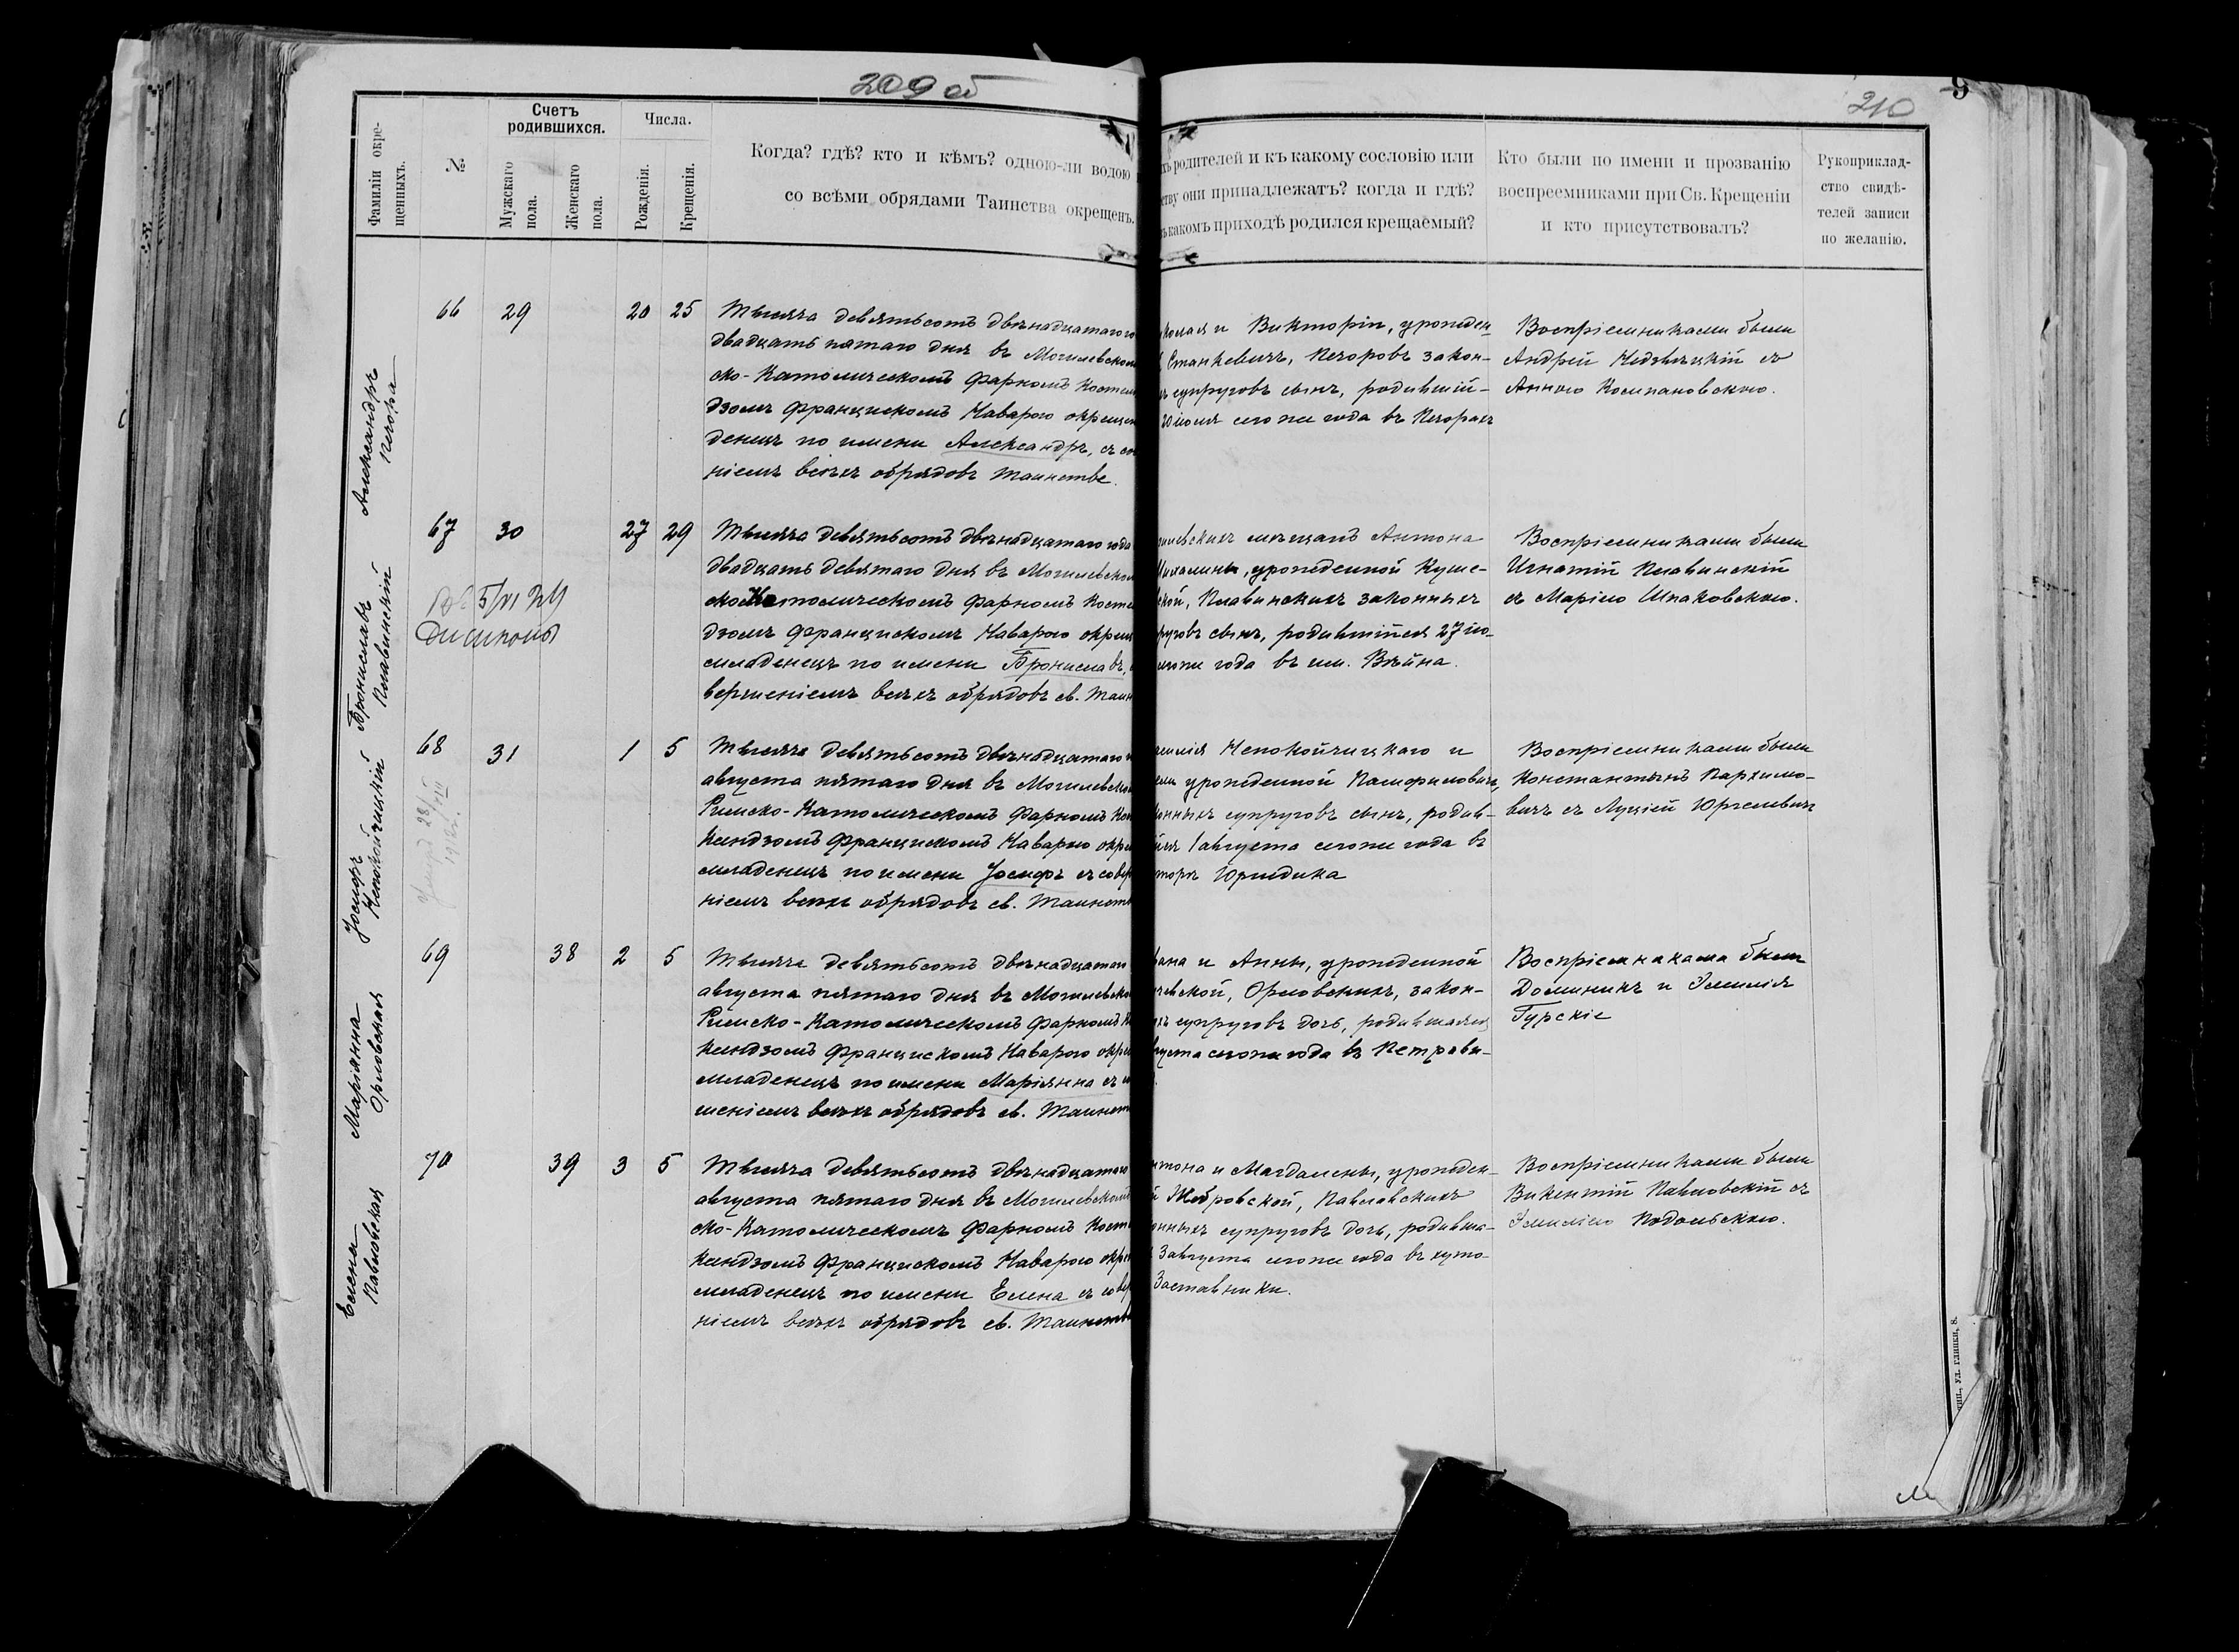 209 об
210
Фамиліи окре-
щенныхъ.
№
Счетъ
родившихся.
Мужскаго
пола.
Женскаго
пола.
Числа.
Рожденія.
Крещенія.
Когда? гдѣ? кто и кѣмъ? одною-ли водою
со всѣми обрядами Таинства окрещенъ.
хъ родителей и къ какому сословію или
ству они принадлежатъ? когда и гдѣ?
какомъ приходѣ родился крещаемый?
Кто были по имени и прозванію
воспреемниками при Св. Крещеніи
и кто присутствовалъ?
Рукоприклад-
ство свидѣ-
телей записи
по желанію.
Александръ
Печора
66 29 20 25
Тысяча девятьсотъ двѣнадцатаго
двадцать пятаго дня въ Могилевском
ско-Католическомъ Фарномъ Костел
дзомъ Францискомъ Наваро окрещен
денецъ по имени Александръ, съ со
ніемъ всѣхъ обрядовъ таинства.
колая и Викторіи, урожден
Станкевичъ, Печоровъ закон-
супруговъ сынъ, родившій-
20 іюля сего же года въ Печорах
Воспріемниками были
Андрей Недзвѣцкій съ
Анною Компановскою.
Брониславъ
Плавинскій
67 30 27 29
Тысяча девятьсотъ двѣнадцатаго года
двадцать девятаго дня въ Могилевском
ско-Католическомъ Фарномъ Косте
дзомъ Францискомъ Наваро окрещ
младенецъ по имени Брониславъ,
вершеніемъ всѣхъ обрядовъ св. Таин
илевскихъ мѣщанъ Антона
Михалины, урожденной Куше-
ской, Плавинскихъ законныхъ
руговъ сынъ, родившійся 27 ію-
сего же года въ им. Вѣйна.
Воспріемниками были
Игнатій Плавинскій
съ Маріею Шпаковскою.
Іосифъ
Непокойчицкій
68 31 1 5
Тысяча девятьсотъ двѣнадцатаго
августа пятаго дня въ Могилевско
Римско-Католическомъ Фарномъ Ко
ксендзомъ Францискомъ Наваро окре
младенецъ по имени Іосифъ съ совер
ніемъ всѣхъ обрядовъ св. Таинств
милія Непокойчицкаго и
урожденной Памфиловичъ,
онныхъ супруговъ сынъ, родив-
ійся 1 августа сего же года въ
торъ Юридика
Воспріемниками были
Константинъ Пархимо-
вичъ съ Луціей Юргелевичъ
Маріанна
Орловская
69 38 2 5
Тысяча девятьсотъ двѣнадцатаго
августа пятаго дня въ Могилевско
Римско-Католическомъ Фарномъ К
ксендзомъ Францискомъ Наваро окре
младенецъ по имени Маріанна съ
шеніемъ всѣхъ обрядовъ св. Таинст
вана и Анны, урожденной
чевской, Орловскихъ, закон-
хъ супруговъ дочь, родившаяся
густа сего же года въ Петрови-
Воспріемниками были
Доминикъ и Эмилія
Гурскіе
Елена
Павловская
70 39 3 5
Тысяча девятьсотъ двѣнадцатаго
августа пятаго дня въ Могилевском
ско-Католическомъ Фарномъ Кост
ксендзомъ Францискомъ Наваро окре
младенецъ по имени Елена съ совер
ніемъ всѣхъ обрядовъ св. Таинств
нтона и Магдалены, урожден-
Жебровской, Павловскихъ
онныхъ супруговъ дочь, родивша-
3 августа сего же года въ хуто-
Заставники.
Воспріемниками были
Викентій Павловскій съ
Эмиліею Подольскою.
ул. Глинки, 8.